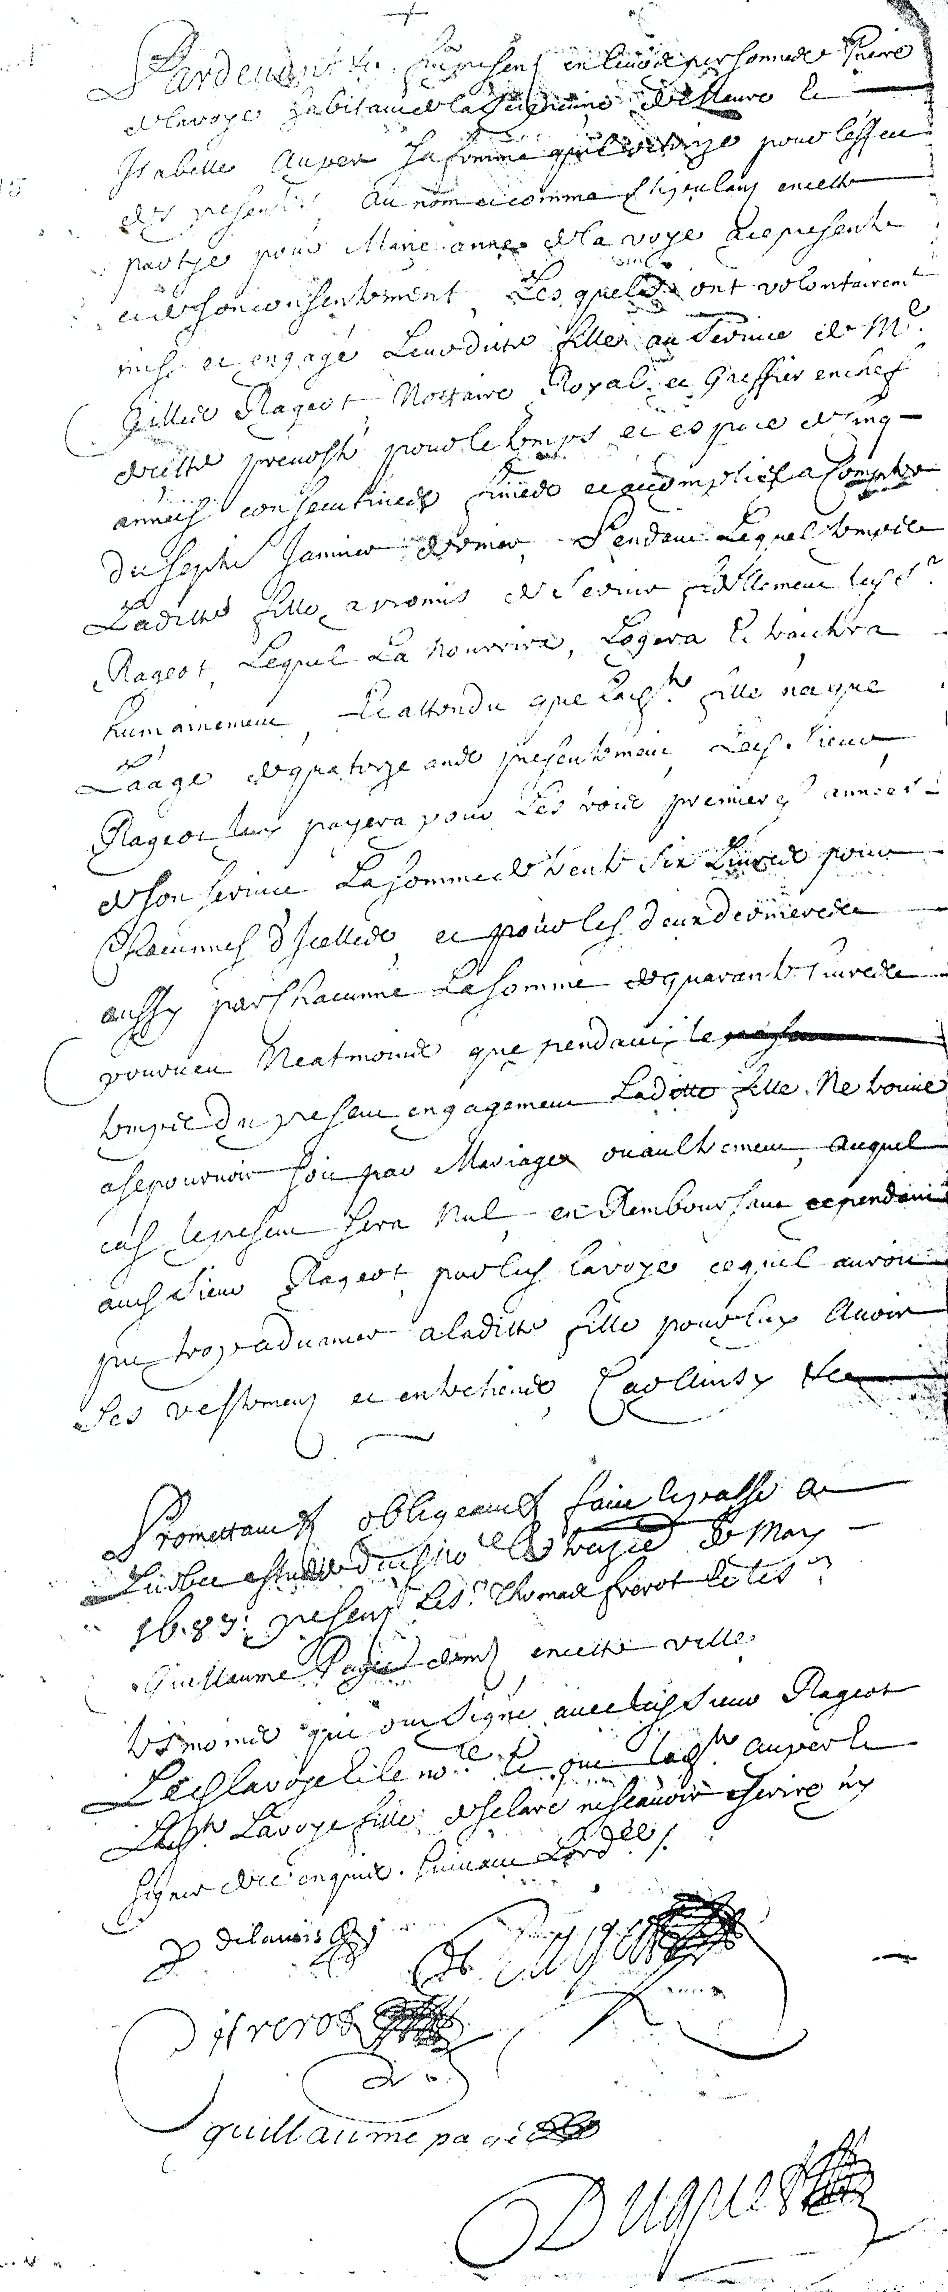 Pardevant &c. fut present en leurs personnes Pierre
delavoye habitant de la Seigneurie de Maure et
Isabelle Auper sa femme quil authorize pour leffect
des presentes, Au nom et comme stipulans en cette
partye pour Marie anne de lavoye a ce presente
et de son consentement, Lesquels ont volontairemt
mis et engagé Leur ditte fille au service de Me
Gilles Rageot Nottaire Royal et Greffier en chef
de cette prevosté pour le temps et espace de cinq
années consecutives finies et accomplies a Compter
du septe Janvier dernier, Pendant Lequel temps de
Laditte fille a promis de servir fidellement ledt Sr
Rageot, Lequel La nourrira, Logera et traictera
humainement, Et attendu que ladte fille na que
Laage de quatorze ans presentement, Ledt Sieur
Rageot luy payera pour Les trois premieres années
de son service La somme de trente six Livres pour
Chacunnes d'Icelles, et pour les deux dernieres
aussy par Chacunne La somme de quarante Livres
pourveu Neatmoins que pendant le
temps du present engagement Laditte fille Ne trouve
a se pourvoir soit par Mariage ou aultrement, Auquel
cas le present sera Nul, en Remboursant cependant
audt Sieur Rageot, par ledt lavoye ce quil auroit
pu trop advancer a laditte fille pour luy Avoir
Ses vestemens et entretiens, Car Ainsy &c
Promettant &c obligeant &c faict et passé a
Quebec estude dudt no.re Le treize de May
1687: presens Les Srs Thomas frerot et les
Guillaume Pagé demt en cette ville
tesmoins qui ont signé avec ledt sieur Rageot
Ledt lavoye et le no.re Et ont ladte auper et
Ladte Lavoye fille declaré ne scavoir escrire ny
signer de ce enquis. suivant Lordce /.
P delavoie
Rageot
frerot
guillaume pagé
Duquet